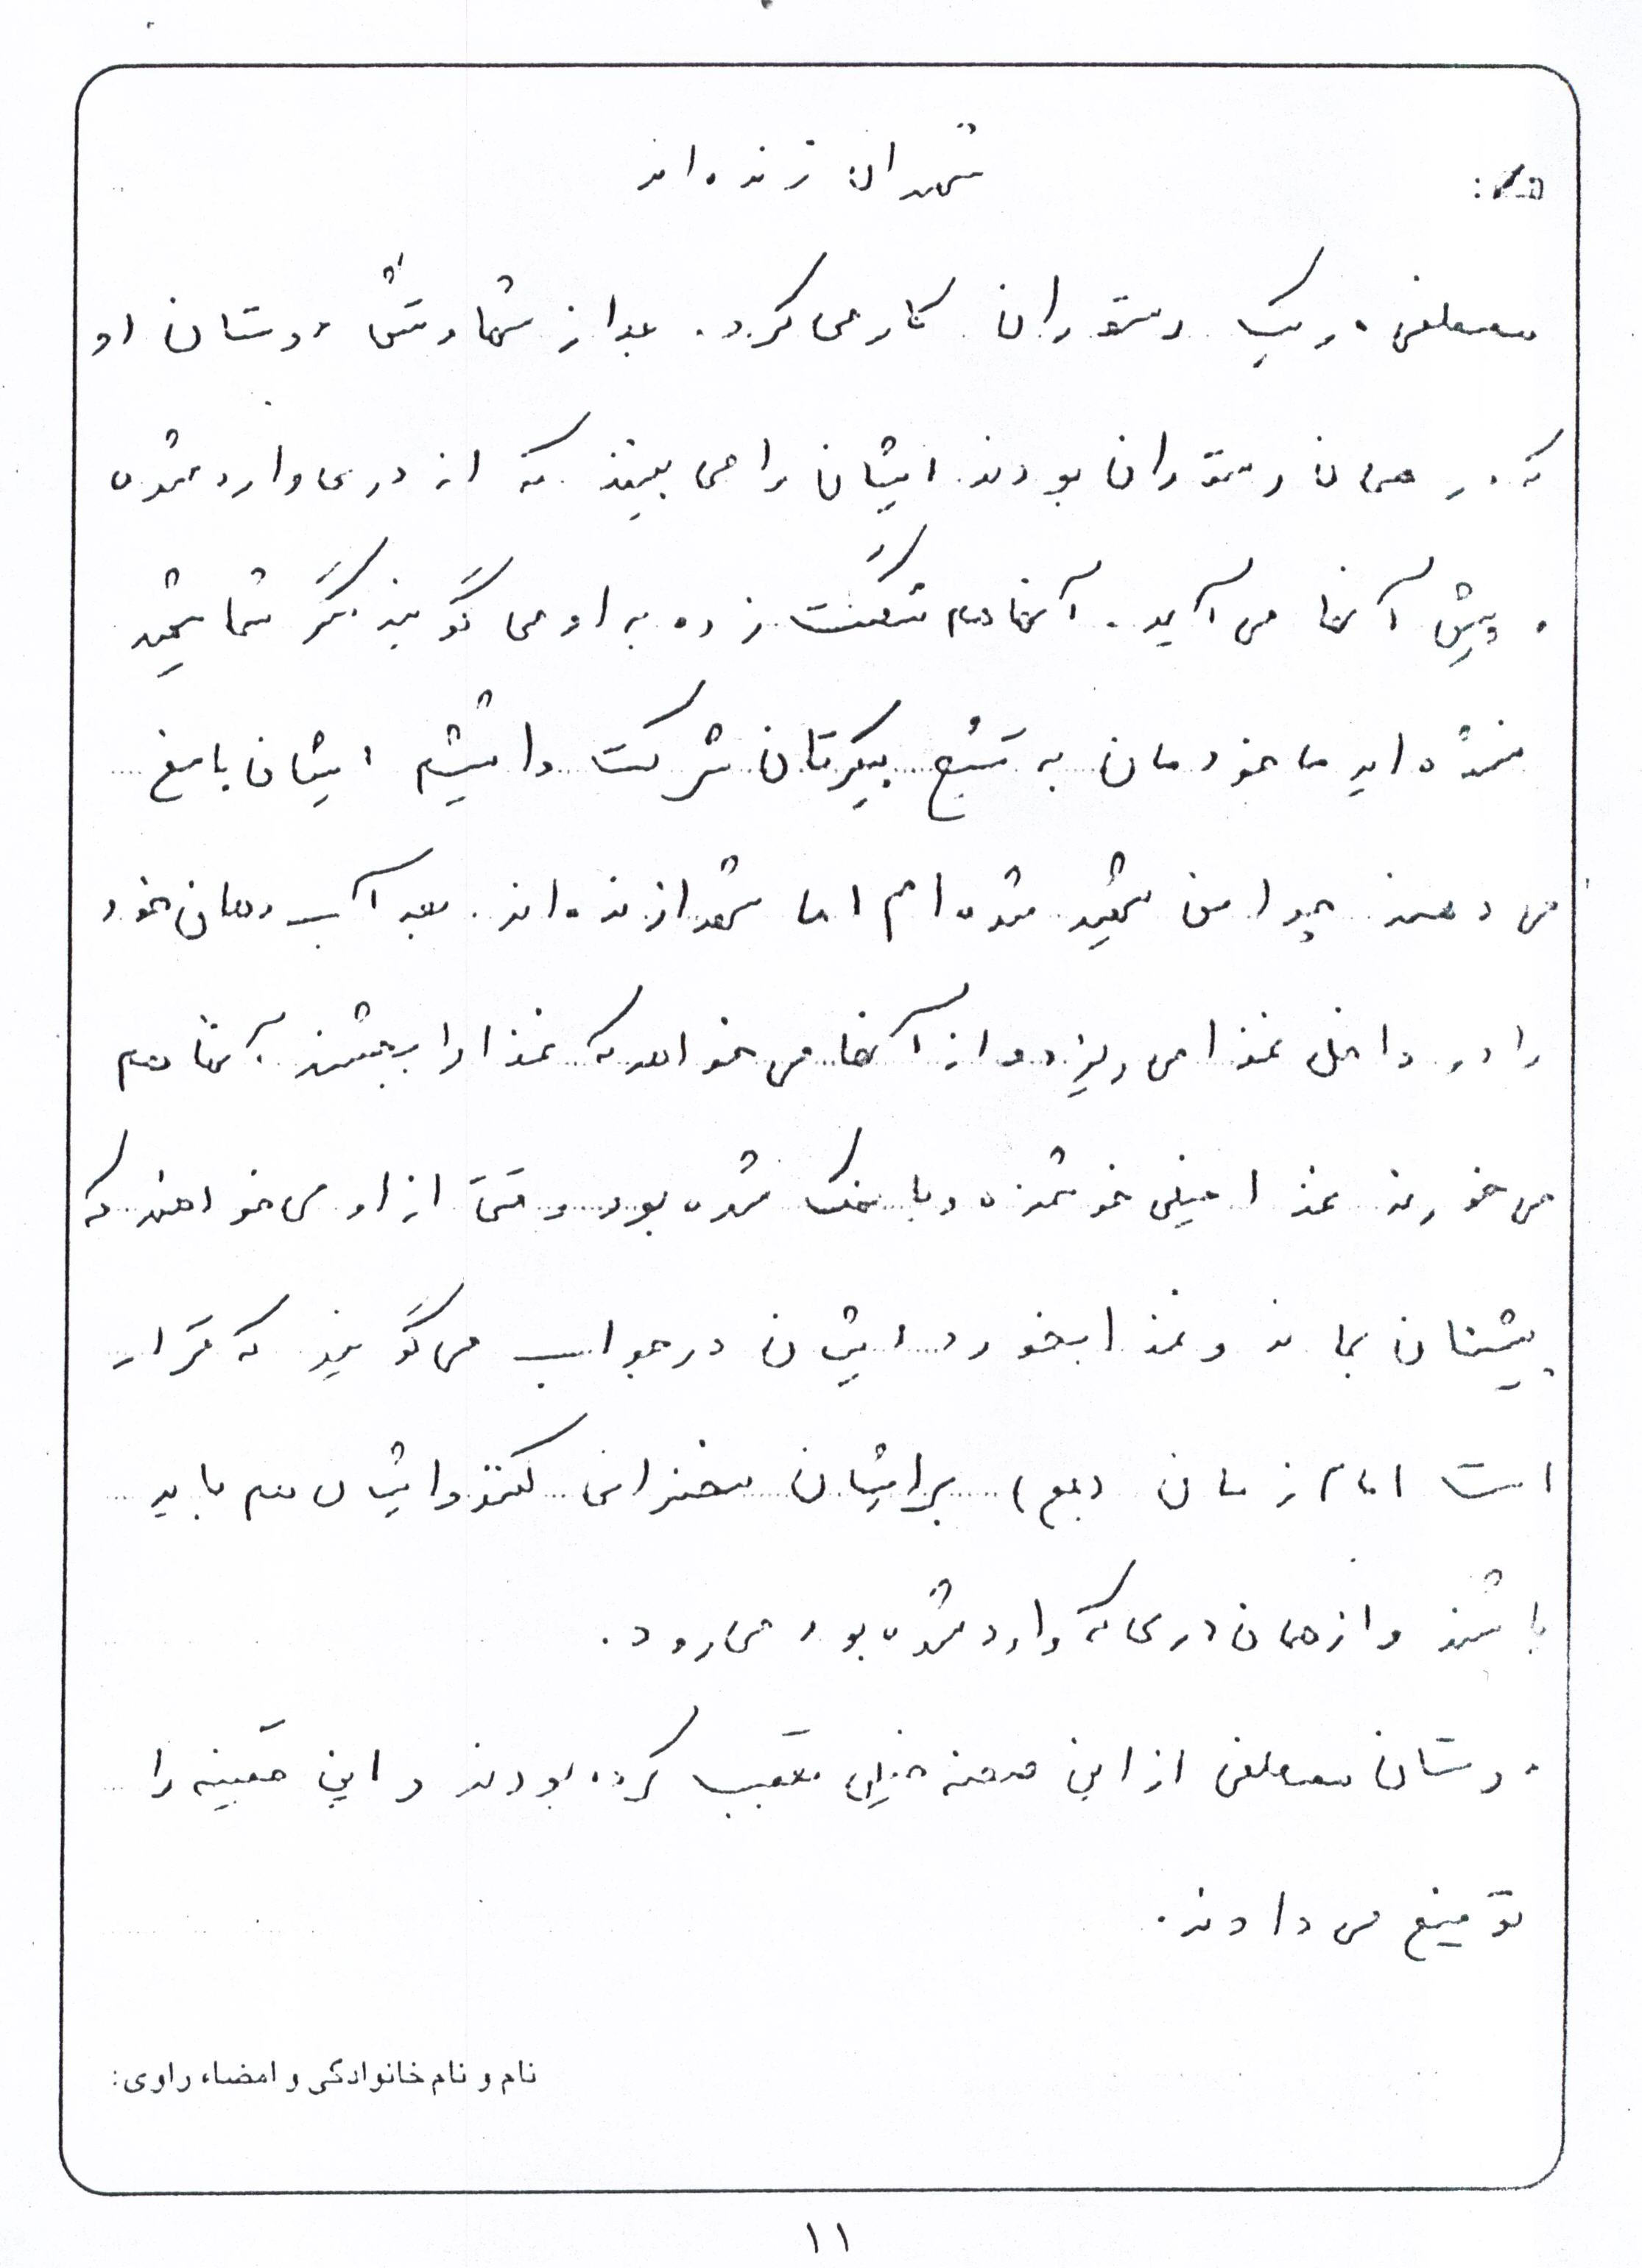 شهیدان زنده‌اند
مصطفی در یک رستوران کار می کرد. بعد از شهادتش دوستان او
که در همان رستوران بودند ایشان را می بینند که از دری وارد شده
و پیش آنها می آید. آنها هم شگفت زده به او می گویند مگر شما شهید
نشده اید ما خودمان به تشیع پیکرتان شرکت داشتیم ایشان پاسخ
می دهند چرا من شهید شده ام اما شهدا زنده اند. بعد آب دهان خود
را در داخل غذا می ریزد و از آنها می خواهد که غذا را بچشند آنها هم
می خورند غذا خیلی خوشمزه و با نمک شده بود وقتی از او می خواهند که
پیششان بماند و غذا بخورد ایشان در جواب می گویند که قرار
است امام زمان (عج) برایشان سخنرانی کنند و ایشان هم باید
باشند و از همان دری که وارد شده بود می رود.
دوستان مصطفی از این صحنه خیلی تعجب کرده بودند و این قضیه را
توضیح می دادند.
نام و نام خانوادگی و امضاء راوی:
۱۱